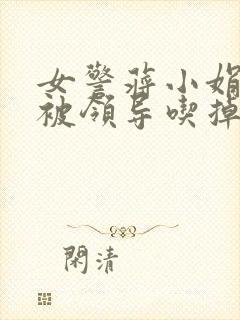 女警蒋小娟
被领导喫掉
閑清